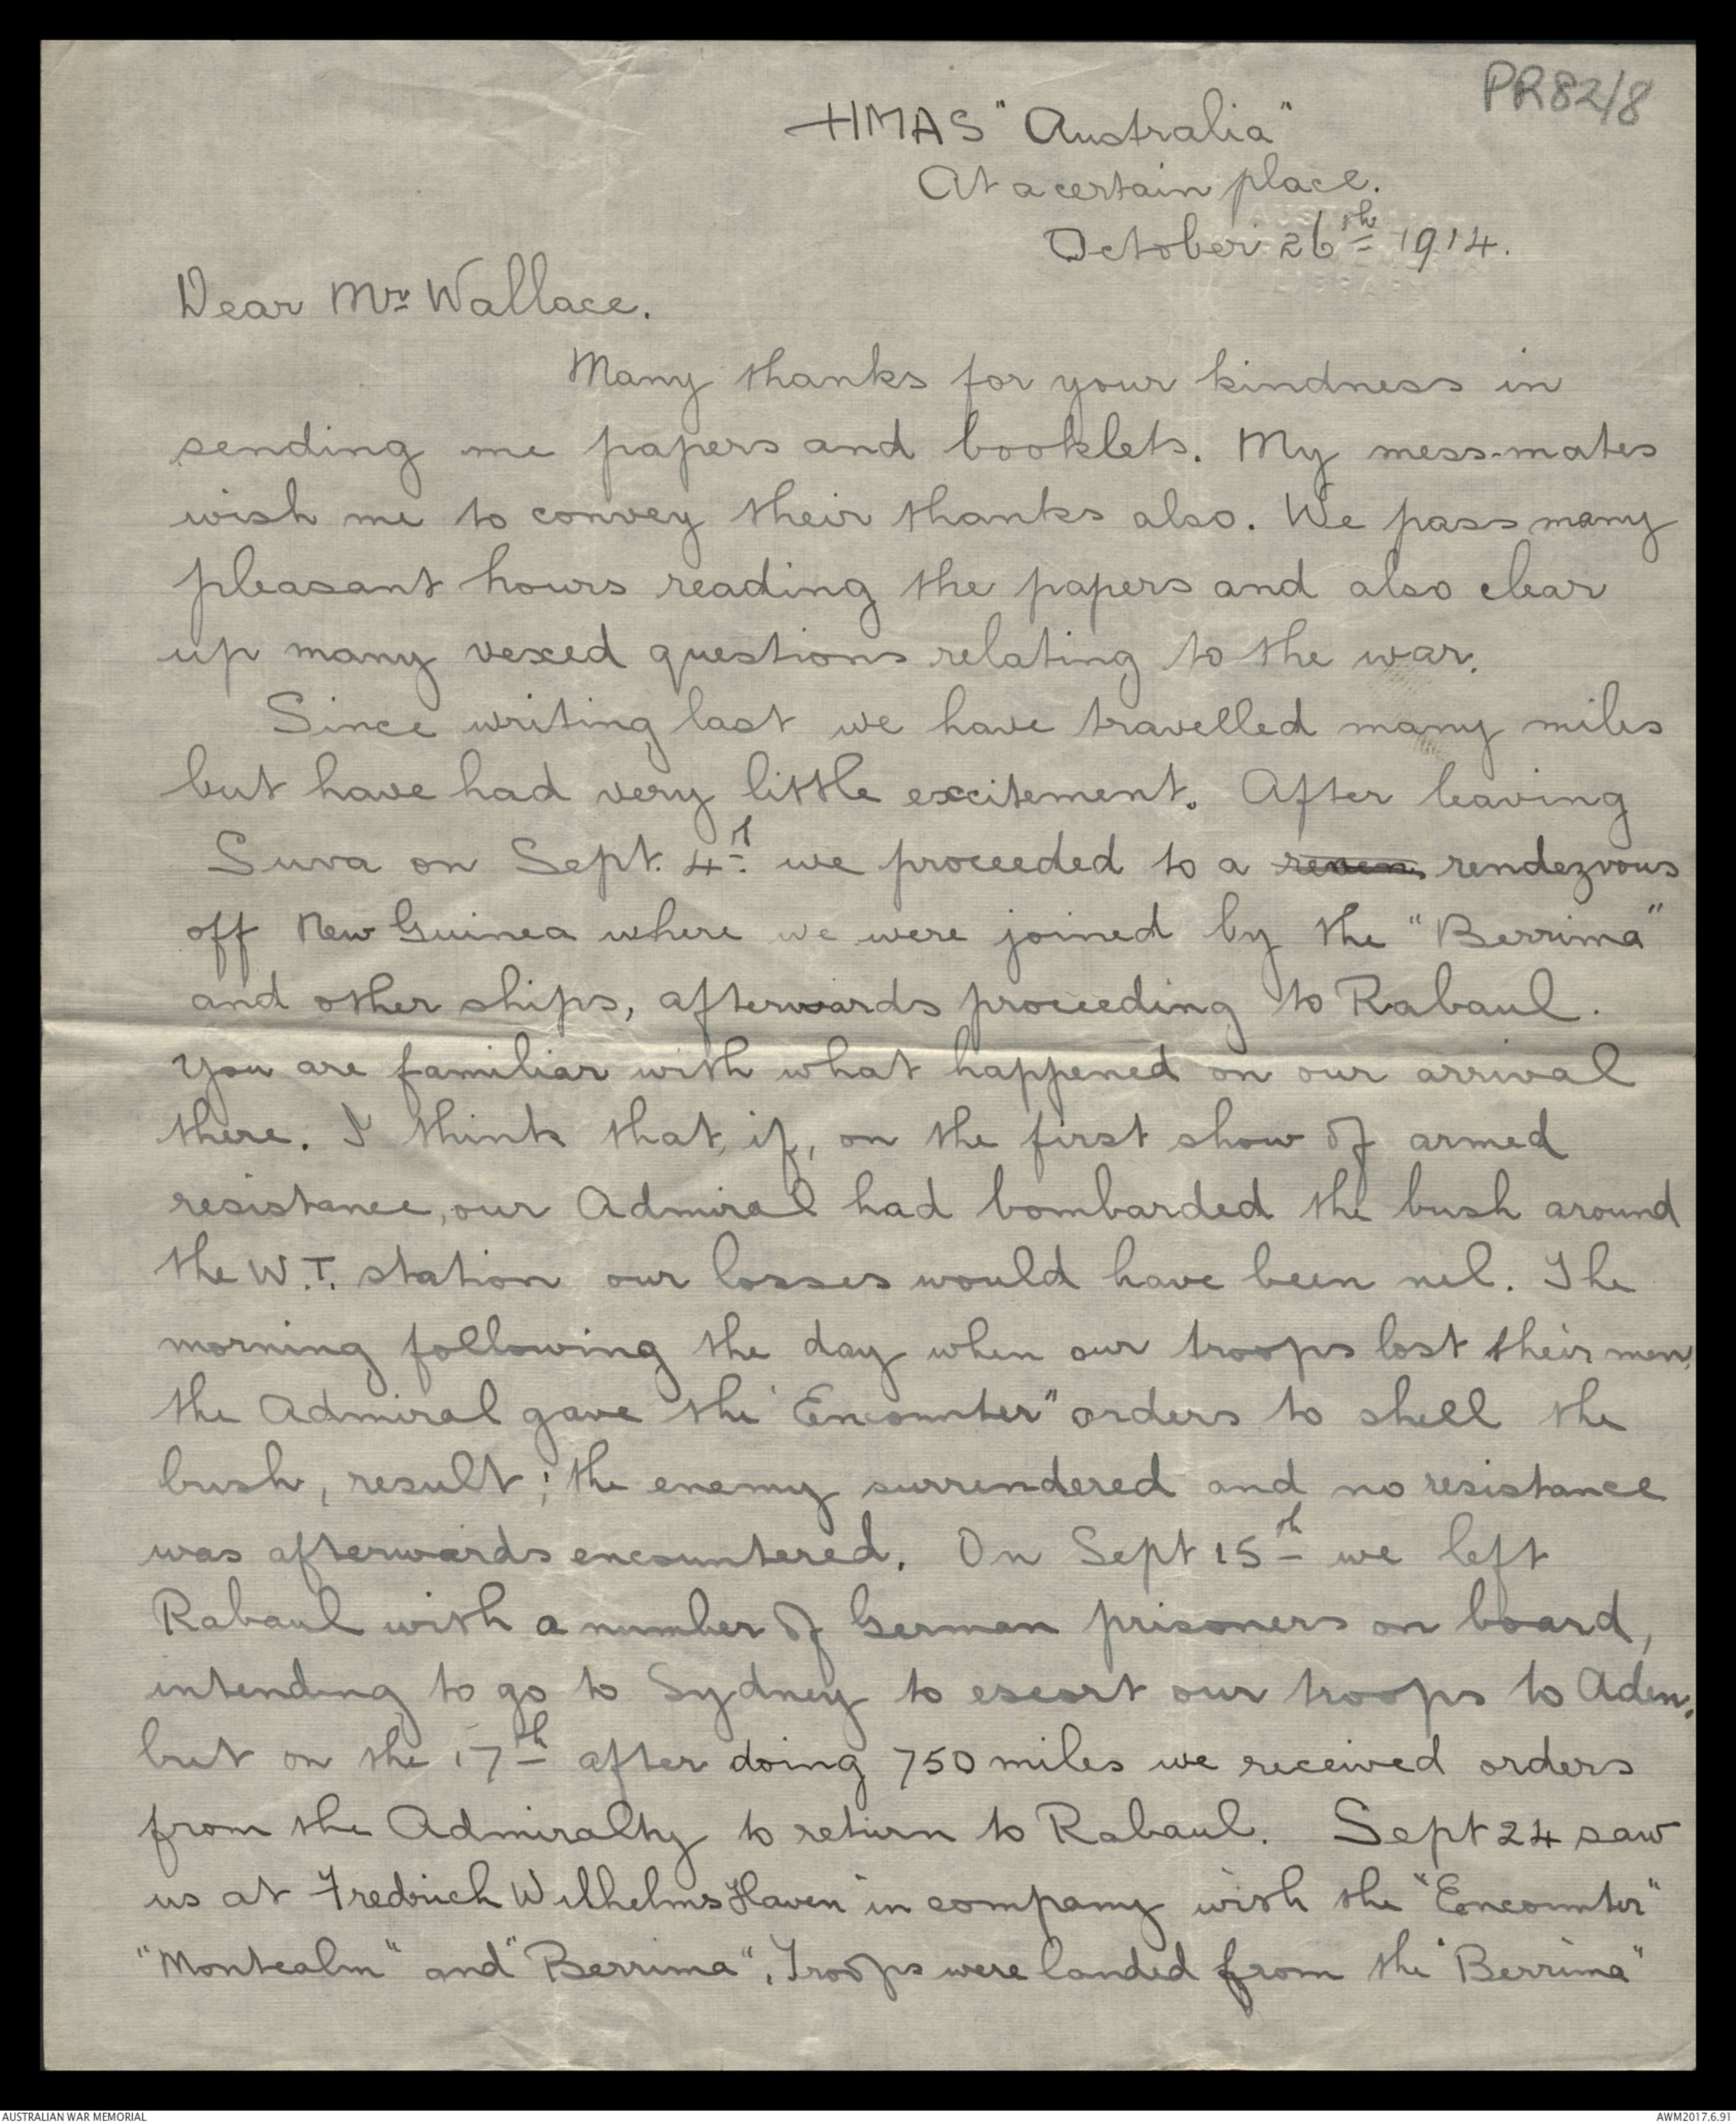 PR82/8
HMAS "Australia"
At a certain place.
October 26th 1914.
Dear Mr Wallace.
Many thanks for your kindness in
sending me papers and booklets. My mess-mates
wish me to convey their thanks also. We pass many
pleasant hours reading the papers and also clear
up many vexed questions relating to the war.
Since writing last we have travelled many miles
but have had very little excitement. After leaving
Suva on Sept. 4th we proceeded to a rendezvous
off New Guinea where we were joined by the "Berrima"
and other ships, afterwards proceeding to Rabaul.
You are familiar with what happened on our arrival
there. I think that, if, on the first show of armed
resistance, our Admiral had bombarded the bush around
the W.T. station our losses would have been nil. The
morning following the day when our troops lost their men,
the Admiral gave the "Encounter" orders to shell the
bush, result; the enemy surrendered and no resistance
was afterwards encountered. On Sept 15th we left
Rabaul with a number of German prisoners on board,
intending to go to Sydney to escort our troops to Aden.
but on the 17th after doing 750 miles we received orders
from the Admiralty to return to Rabaul. Sept 24 saw
us at Fredrich WilhelmsHaven in company with the "Encounter"
"Montcalm" and "Berrima". Troops were landed from the "Berrima"
AUSTRALIAN WAR MEMORIAL
AWM2017.6.91